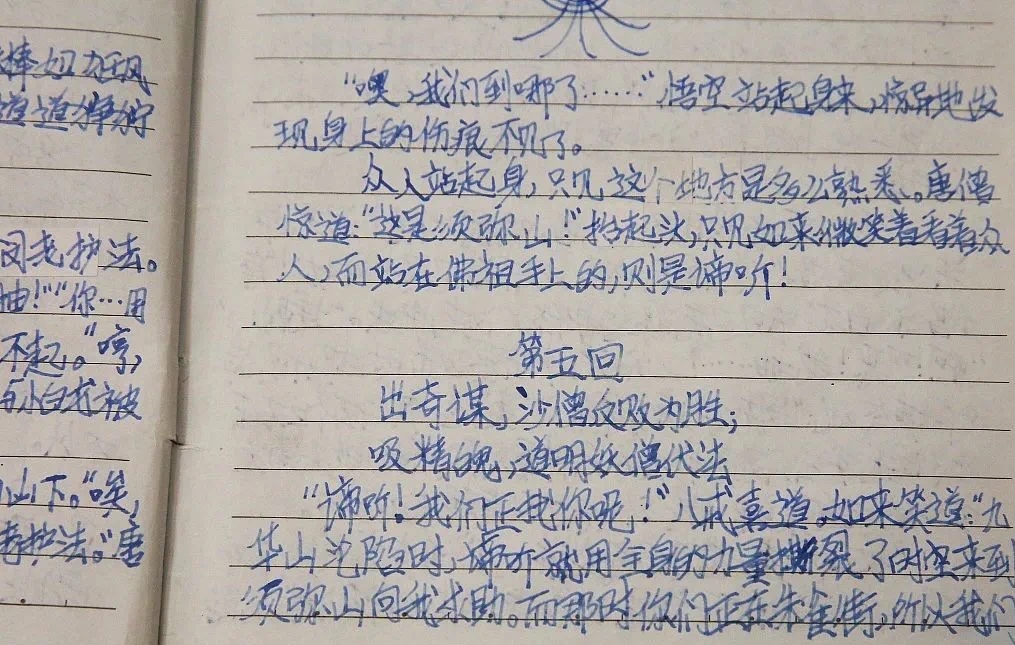 棒妞
道道狰狞
阅老护法。
抽!""你…用
不起。"哼,
与小白龙被
山下。"唉,
老护法。"唐
"噢,我们到哪了……"悟空站起身来,惊异地发
现身上的伤痕不见了。
众人站起身,只见这个地方是多么熟悉。唐僧
惊道:"这是须弥山!"抬起头,只见如来微笑着看着众
人,而站在佛祖手上的,则是谛听!
第五回
出奇谋,沙僧反败为胜;
吸精魄,道明妖僧伏法
"谛听!我们正找你呢!"八戒喜道。如来笑道:"九
华山沦陷时,谛听就用全身的力量撕裂了时空来到
须弥山向我求助。而那时你们正在朱雀街,所以我们